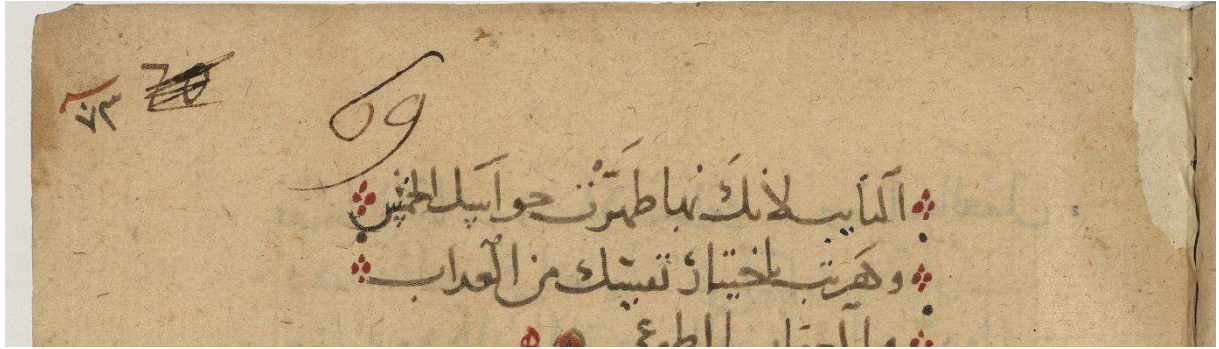 ٧٣ 70 69
لانك بها طهرت حواسك الخمس
وهربت باختيار نفسك من العداب